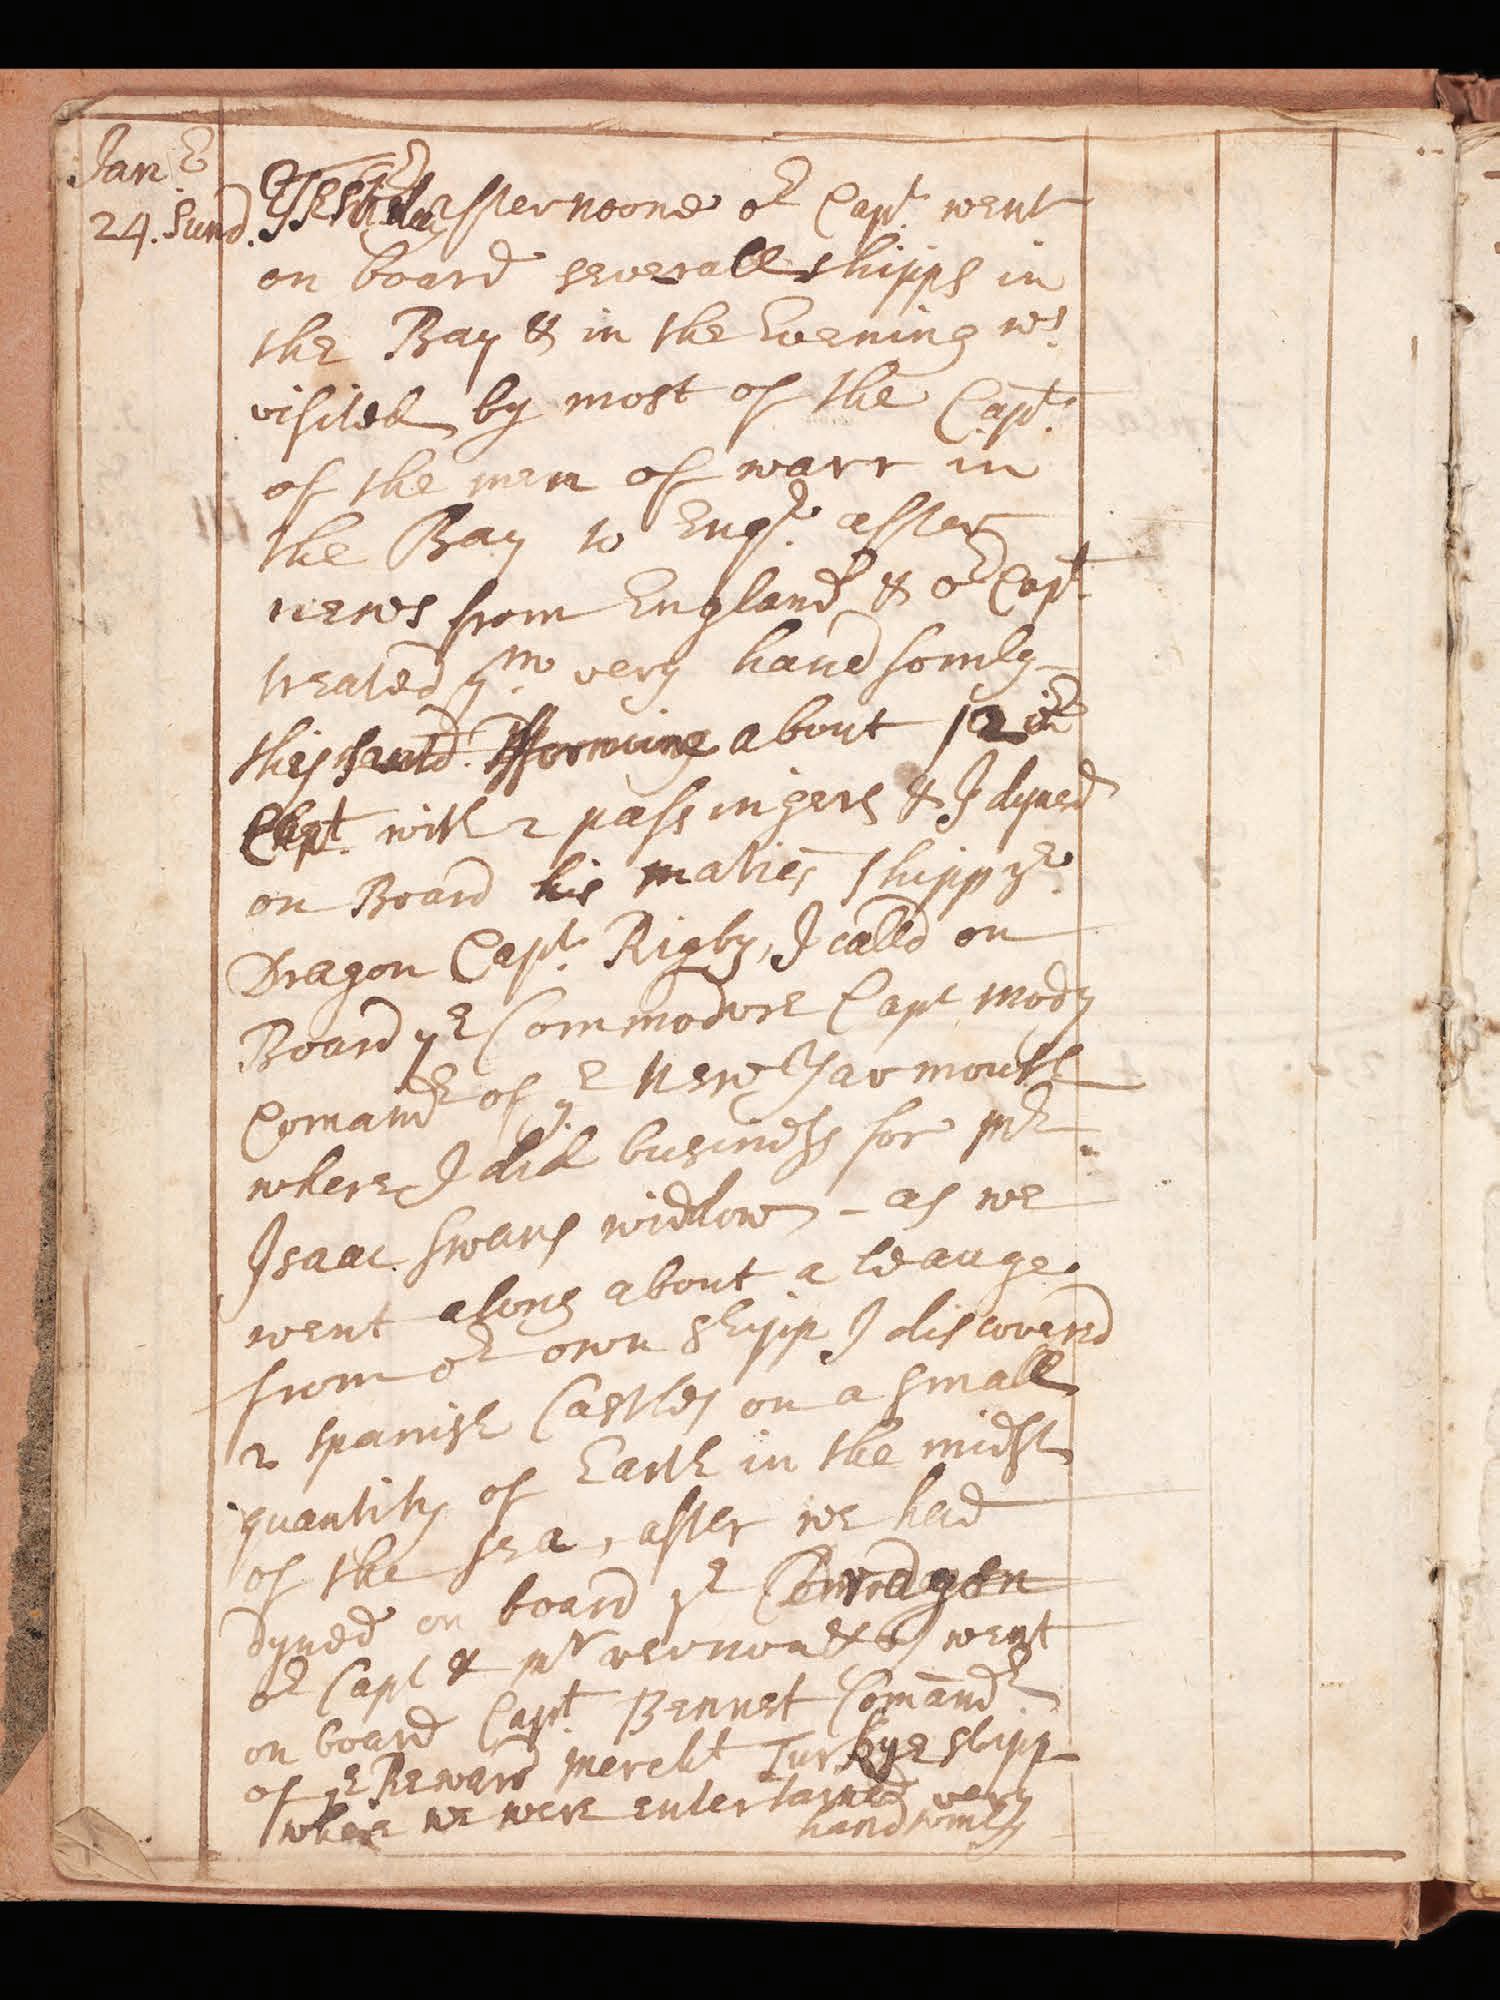 Janʳ
24. Sund. Yesterday afternoone oʳ Capᵗ. went
on board severall shipps in
the Bay & in the Evening wˢ
visited by most of the Capᵗˢ.
of the men of warr in
the Bay to Enqʳ. after
news from England & oʳ Capᵗ.
treated yᵐ very handsomly
this about 12 oʳ
Capᵗ. with 2 passingers & I dyned
on Board his maties shipp yᵉ.
Dragon Capᵗ. Rigby, I calld on
Board yᵉ Commodore Capᵗ Mody
Comandʳ of yᵉ New Yarmouth
where I did business for Mʳ
Isaac Swans widdow - as we
went along about a leauge.
from oʳ own shipp I discovered
2 Spanish Castles on a small
quantity of Earth in the midst
of the sea, after we had
dyned on board yᵉ
oʳ Capᵗ & Mʳ vernon & I went
on board Capᵗ. Bennet Comandʳ
of yᵉ Reward Mercht Turkye shipp
where we were entertained very
handsomly